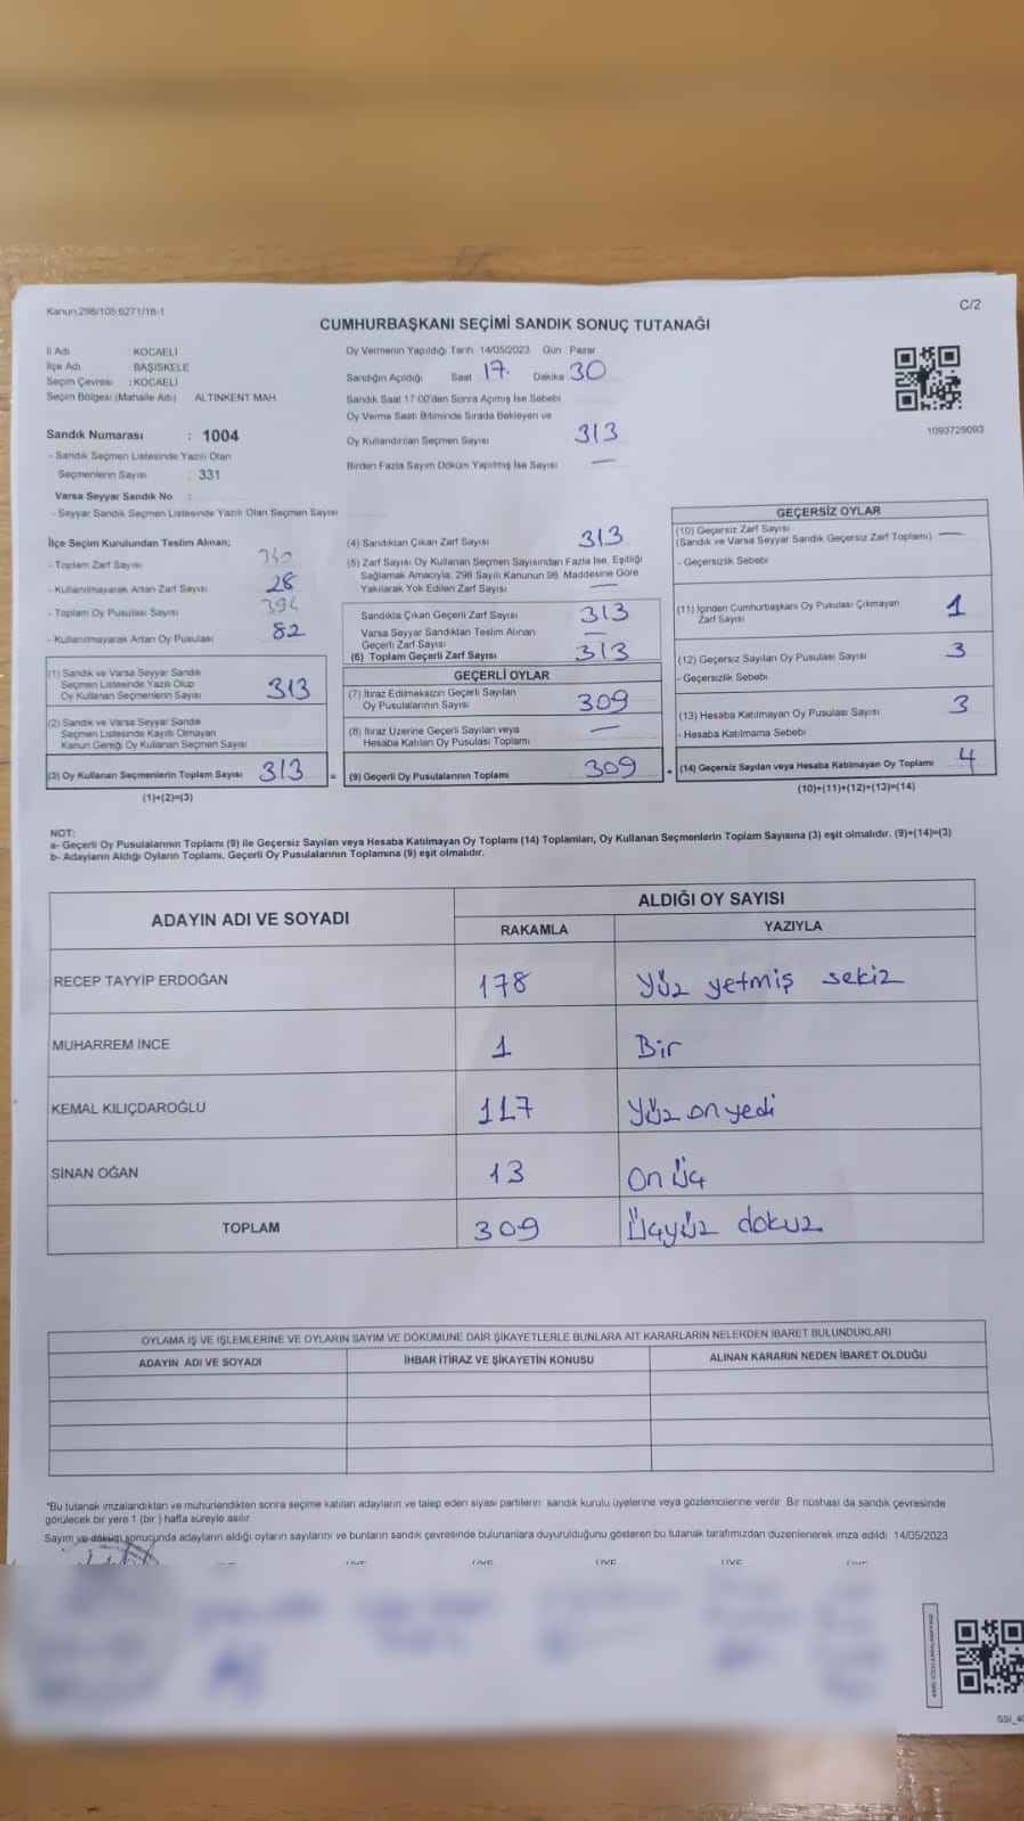 Kanun:298/105:6271/18-1
C/2
CUMHURBAŞKANI SEÇİMİ SANDIK SONUÇ TUTANAĞI
İl Adı : KOCAELİ
İlçe Adı : BAŞİSKELE
Seçim Çevresi : KOCAELİ
Seçim Bölgesi (Mahalle Adı) ALTINKENT MAH.
Sandık Numarası : 1004
- Sandık Seçmen Listesinde Yazılı Olan
Seçmenlerin Sayısı : 331
Varsa Seyyar Sandık No :
- Seyyar Sandık Seçmen Listesinde Yazılı Olan Seçmen Sayısı
Oy Vermenin Yapıldığı Tarih 14/05/2023 Gün : Pazar
Sandığın Açıldığı Saat 17. Dakika 30
Sandık Saat 17:00'den Sonra Açılmış İse Sebebi
Oy Verme Saati Bitiminde Sırada Bekleyen ve
Oy Kullandırılan Seçmen Sayısı 313
Birden Fazla Sayım Döküm Yapılmış İse Sayısı —
1093729093
İlçe Seçim Kurulundan Teslim Alınan;
- Toplam Zarf Sayısı
- Kullanılmayarak Artan Zarf Sayısı 28
- Toplam Oy Pusulası Sayısı 394
- Kullanılmayarak Artan Oy Pusulası 82
(1) Sandık ve Varsa Seyyar Sandık
Seçmen Listesinde Yazılı Olup
Oy Kullanan Seçmenlerin Sayısı 313
(2) Sandık ve Varsa Seyyar Sandık
Seçmen Listesinde Kayıtlı Olmayan
Kanun Gereği Oy Kullanan Seçmen Sayısı
(3) Oy Kullanan Seçmenlerin Toplam Sayısı 313
(1)+(2)=(3)
(4) Sandıktan Çıkan Zarf Sayısı 313
(5) Zarf Sayısı Oy Kullanan Seçmen Sayısından Fazla İse, Eşitliği
Sağlamak Amacıyla, 298 Sayılı Kanunun 98. Maddesine Göre
Yakılarak Yok Edilen Zarf Sayısı —
Sandıkta Çıkan Geçerli Zarf Sayısı 313
Varsa Seyyar Sandıktan Teslim Alınan
Geçerli Zarf Sayısı —
(6) Toplam Geçerli Zarf Sayısı 313
GEÇERLİ OYLAR
(7) İtiraz Edilmeksizin Geçerli Sayılan
Oy Pusulalarının Sayısı 309
(8) İtiraz Üzerine Geçerli Sayılan veya
Hesaba Katılan Oy Pusulası Toplamı —
(9) Geçerli Oy Pusulalarının Toplamı 309
GEÇERSİZ OYLAR
(10) Geçersiz Zarf Sayısı
(Sandık ve Varsa Seyyar Sandık Geçersiz Zarf Toplamı) —
- Geçersizlik Sebebi
(11) İçinden Cumhurbaşkanı Oy Pusulası Çıkmayan
Zarf Sayısı 1
(12) Geçersiz Sayılan Oy Pusulası Sayısı 3
- Geçersizlik Sebebi
(13) Hesaba Katılmayan Oy Pusulası Sayısı 3
- Hesaba Katılmama Sebebi
(14) Geçersiz Sayılan veya Hesaba Katılmayan Oy Toplamı 4
(10)+(11)+(12)+(13)=(14)
NOT:
a- Geçerli Oy Pusulalarının Toplamı (9) ile Geçersiz Sayılan veya Hesaba Katılmayan Oy Toplamı (14) Toplamları, Oy Kullanan Seçmenlerin Toplam Sayısına (3) eşit olmalıdır. (9)+(14)=(3)
b- Adayların Aldığı Oyların Toplamı, Geçerli Oy Pusulalarının Toplamına (9) eşit olmalıdır.
ADAYIN ADI VE SOYADI
ALDIĞI OY SAYISI
RAKAMLA YAZIYLA
RECEP TAYYİP ERDOĞAN 178 Yüz yetmiş sekiz
MUHARREM İNCE 1 Bir
KEMAL KILIÇDAROĞLU 117 Yüz on yedi
SİNAN OĞAN 13 On üç
TOPLAM 309 Üçyüz dokuz
OYLAMA İŞ VE İŞLEMLERİNE VE OYLARIN SAYIM VE DÖKÜMÜNE DAİR ŞİKAYETLERLE BUNLARA AİT KARARLARIN NELERDEN İBARET BULUNDUKLARI
ADAYIN ADI VE SOYADI İHBAR İTİRAZ VE ŞİKAYETİN KONUSU ALINAN KARARIN NEDEN İBARET OLDUĞU
*Bu tutanak imzalandıktan ve mühürlendikten sonra seçime katılan adayların ve talep eden siyasi partilerin sandık kurulu üyelerine veya gözlemcilerine verilir. Bir nüshası da sandık çevresinde
görülecek bir yere 1 (bir) hafta süreyle asılır.
Sayım ve döküm sonucunda adayların aldığı oyların sayılarını ve bunların sandık çevresinde bulunanlara duyurulduğunu gösteren bu tutanak tarafımızdan düzenlenerek imza edildi. 14/05/2023